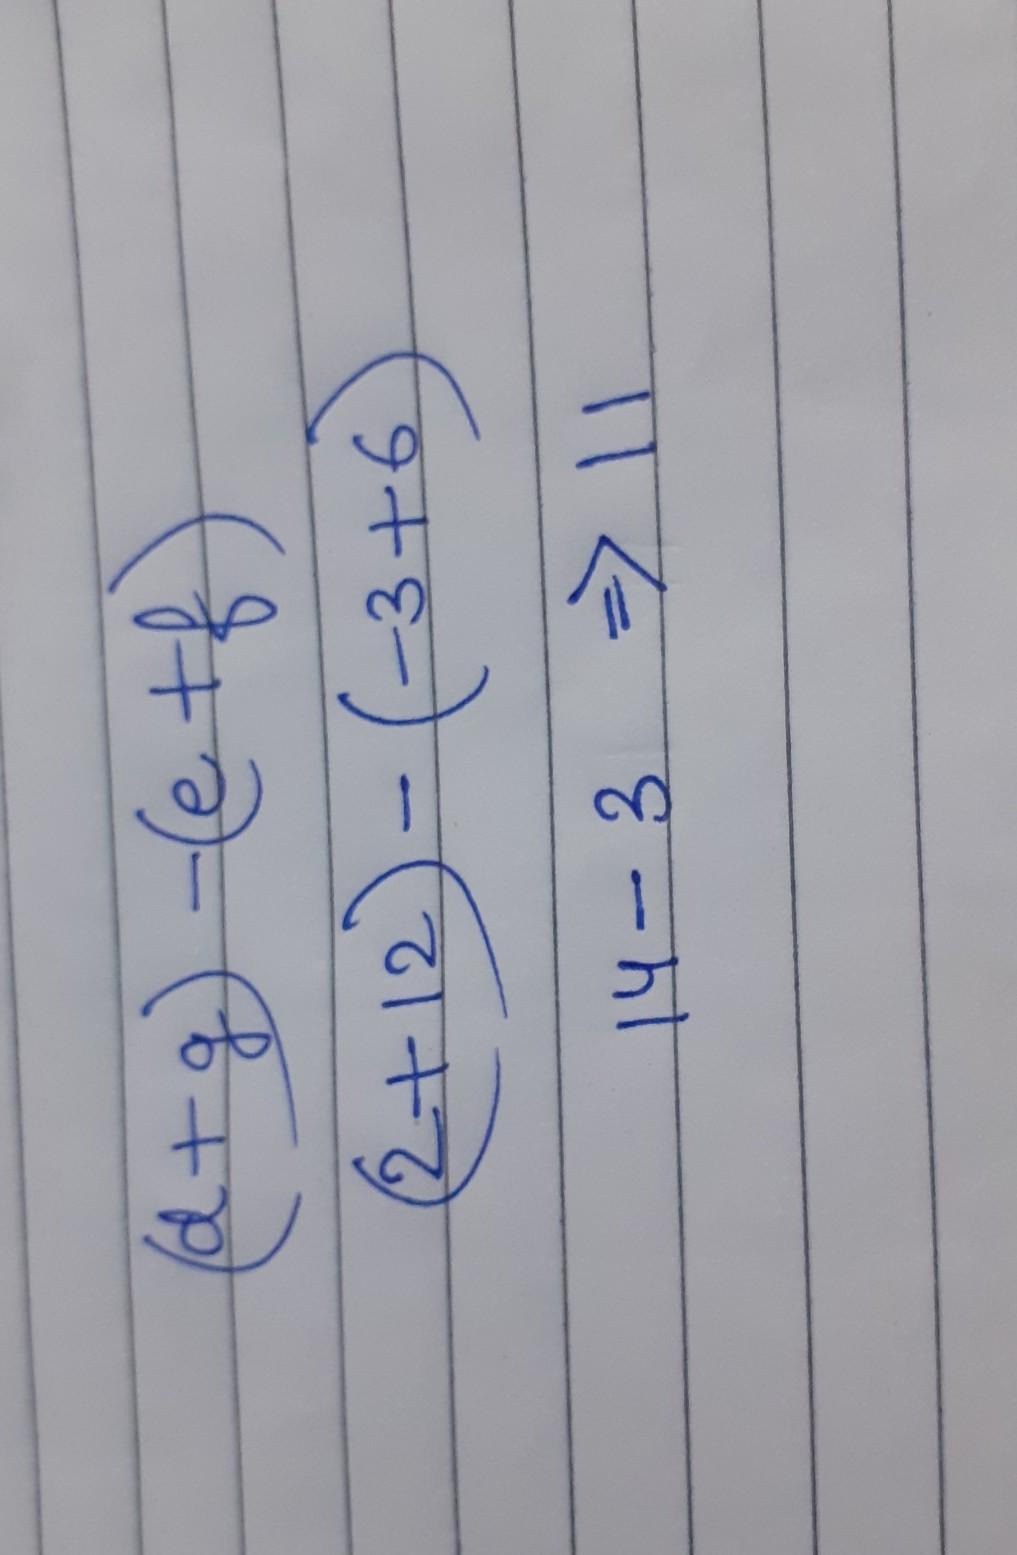 (d+g) -(e+f)
(2+12) - (-3+6)
14 - 3 ⇒ 11